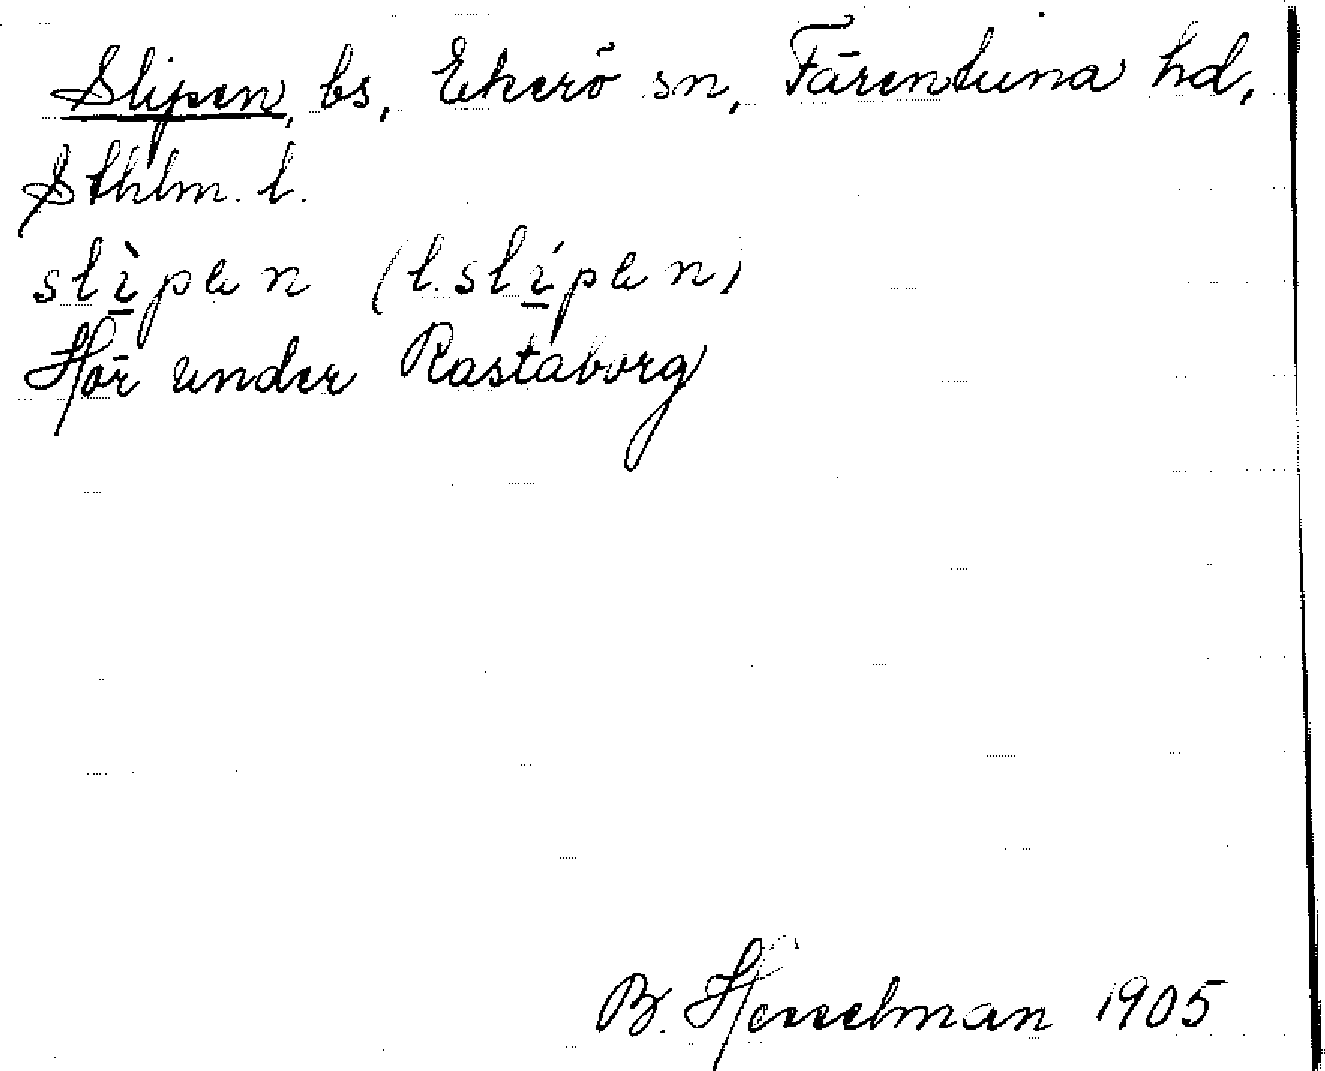 Slipen, bs, Ekerö sn, Färentuna hd,
Sthlm. l.
slìpen (l. slípen)
Hör under Rastaborg
B. Hesselman 1905